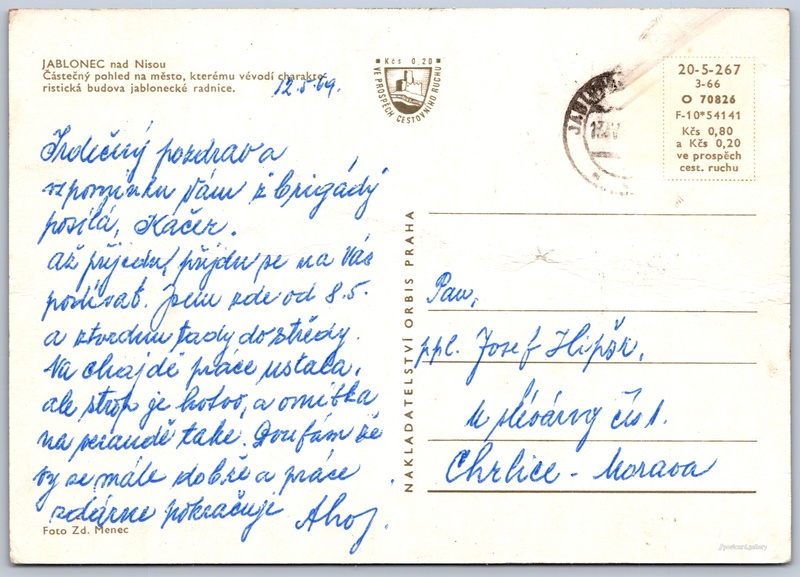 JABLONEC nad Nisou
Částečný pohled na město, kterému vévodí charakte-
ristická budova jablonecké radnice.
12.5.69.
Srdečný pozdrav a
vzpomínku Vám z brigády
posílá, Kačer.
až přijedu, přijdu se na Vás
podívat. Jsem zde od 8.5.
a ztvrdnu tady do středy.
Na chajdě práce ustala,
ale strop je hotov, a omítka
na verandě také. Doufám že
vy se máte dobře a práce
zdárne pokračuje Ahoj.
Foto Zd. Menec
Kčs 0,20
VE PROSPĚCH CESTOVNÍHO RUCHU
NAKLADATELSTVÍ ORBIS PRAHA
JABLONEC
20-5-267
3-66
O 70826
F-10*54141
Kčs 0,80
a Kčs 0,20
ve prospěch
cest. ruchu
Pan,
ppl. Josef
U čís 1.
Chrlice - Morava
postcard.gallery